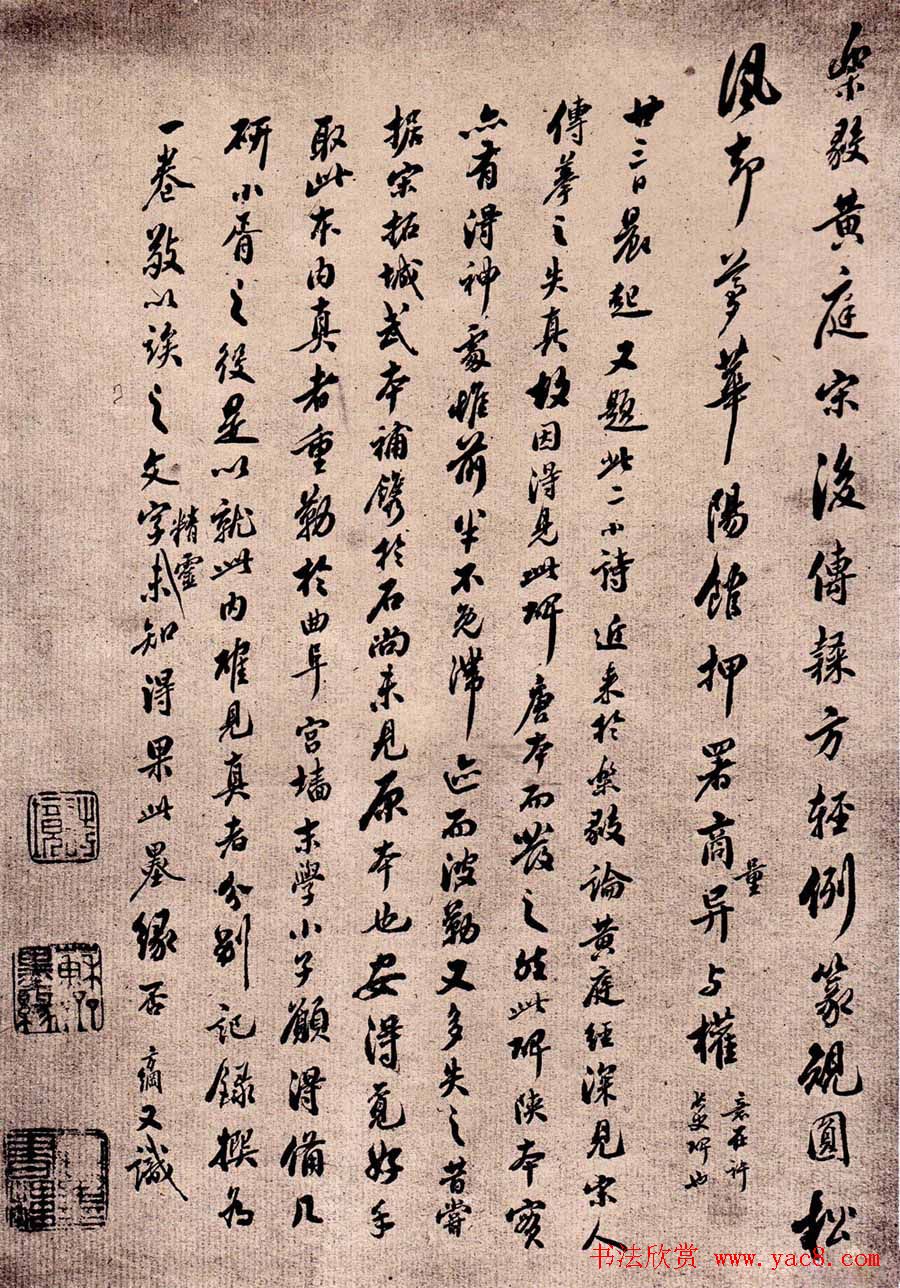 樂毅黃庭宋後傳隸方輕例篆規圓松
風却夢華陽館押署商量异与權
意在許
長史碑也
廿三日晨起又題此二小詩近来於樂毅論黃庭經深見宋人
傳摹之失真故因得見此碑唐本而發之然此碑陝本實
亦有得神處惟前半不免滯迹而波勒又多失之昔嘗
据宋拓城武本補鐫於石尚未見原本也安得覓好手
取此本內真者重勒於曲阜宮墻末學小子願得備几
研小胥之役是以就此內確見真者分別記錄撰為
一卷敬以俟之文字精靈未知得果此墨緣否 方綱又識
蘇米
墨緣
书法欣赏 www.yac8.com